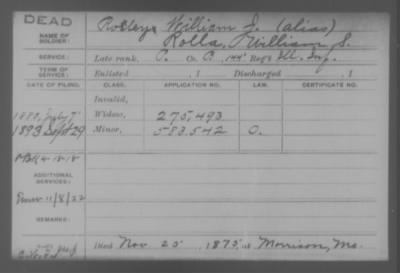 DEAD
NAME OF SOLDIER:
Rolley, William J. (alias)
Rolla, William S.
SERVICE:
Late rank, P. Co. C, 144" Reg't Ill. Inf.
TERM OF SERVICE:
Enlisted , 1 Discharged , 1
DATE OF FILING. CLASS. APPLICATION NO. LAW. CERTIFICATE NO.
Invalid,
1880, July 7" Widow, 275,493
1893 Sept 29 Minor, 583.542 O.
4-18-18
ADDITIONAL SERVICES:
11/8/22
REMARKS:
Died Nov. 25, 1875, at Morrison, Mo.